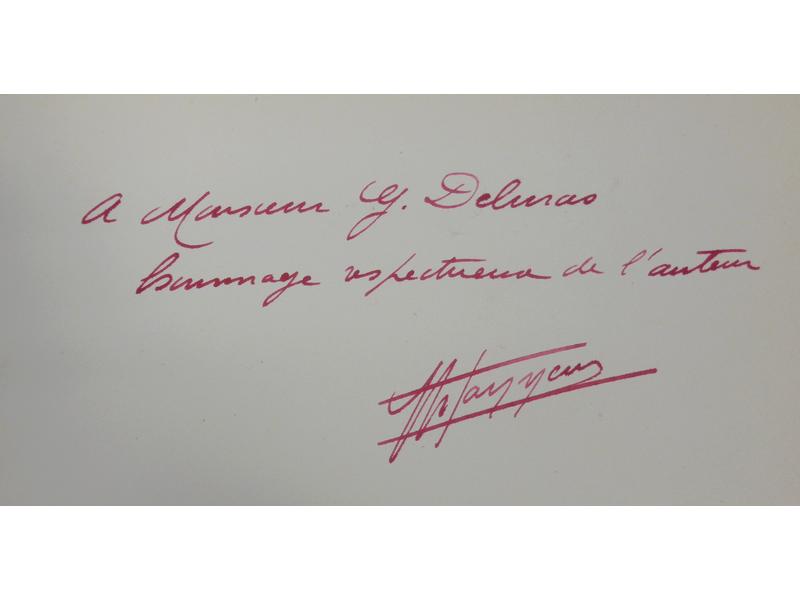 A Monsieur G. Delmas
hommage respectueux de l'auteur